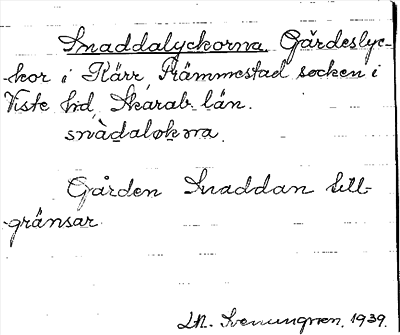 Snaddalyckorna. Gärdeslyc-
kor i Kärr, Främmestad socken i
Viste hd, Skarab. län.
snàdaløkọra.
Gården Snaddan till-
gränsar.
Svenungsson. 1939.